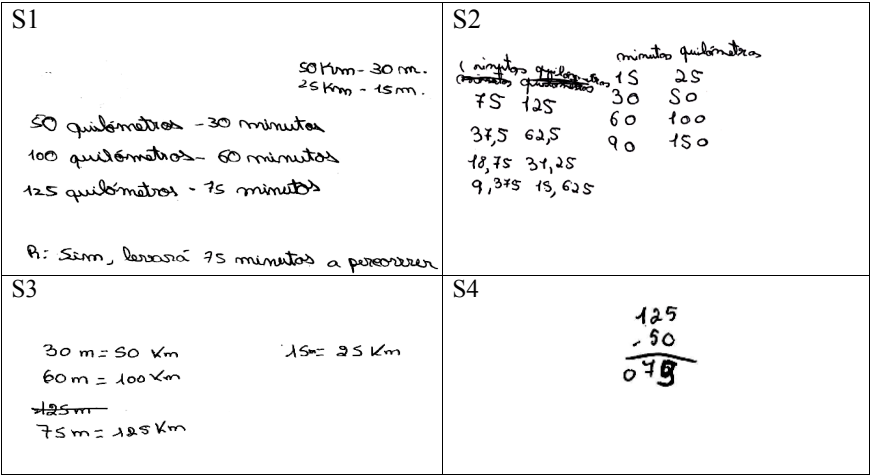 S1
50 Km - 30 m.
25 Km - 15 m.
50 quilómetros - 30 minutos
100 quilómetros - 60 minutos
125 quilómetros - 75 minutos
R: Sim, levará 75 minutos a percorrer
S2
minutos quilómetros
minutos quilómetros
75 125
37,5 62,5
18,75 31,25
9,375 15,625
minutos quilómetros
15 25
30 50
60 100
90 150
S3
30 m = 50 Km
60 m = 100 Km
125 m
75 m = 125 Km
15m = 25 Km
S4
125
- 50
075